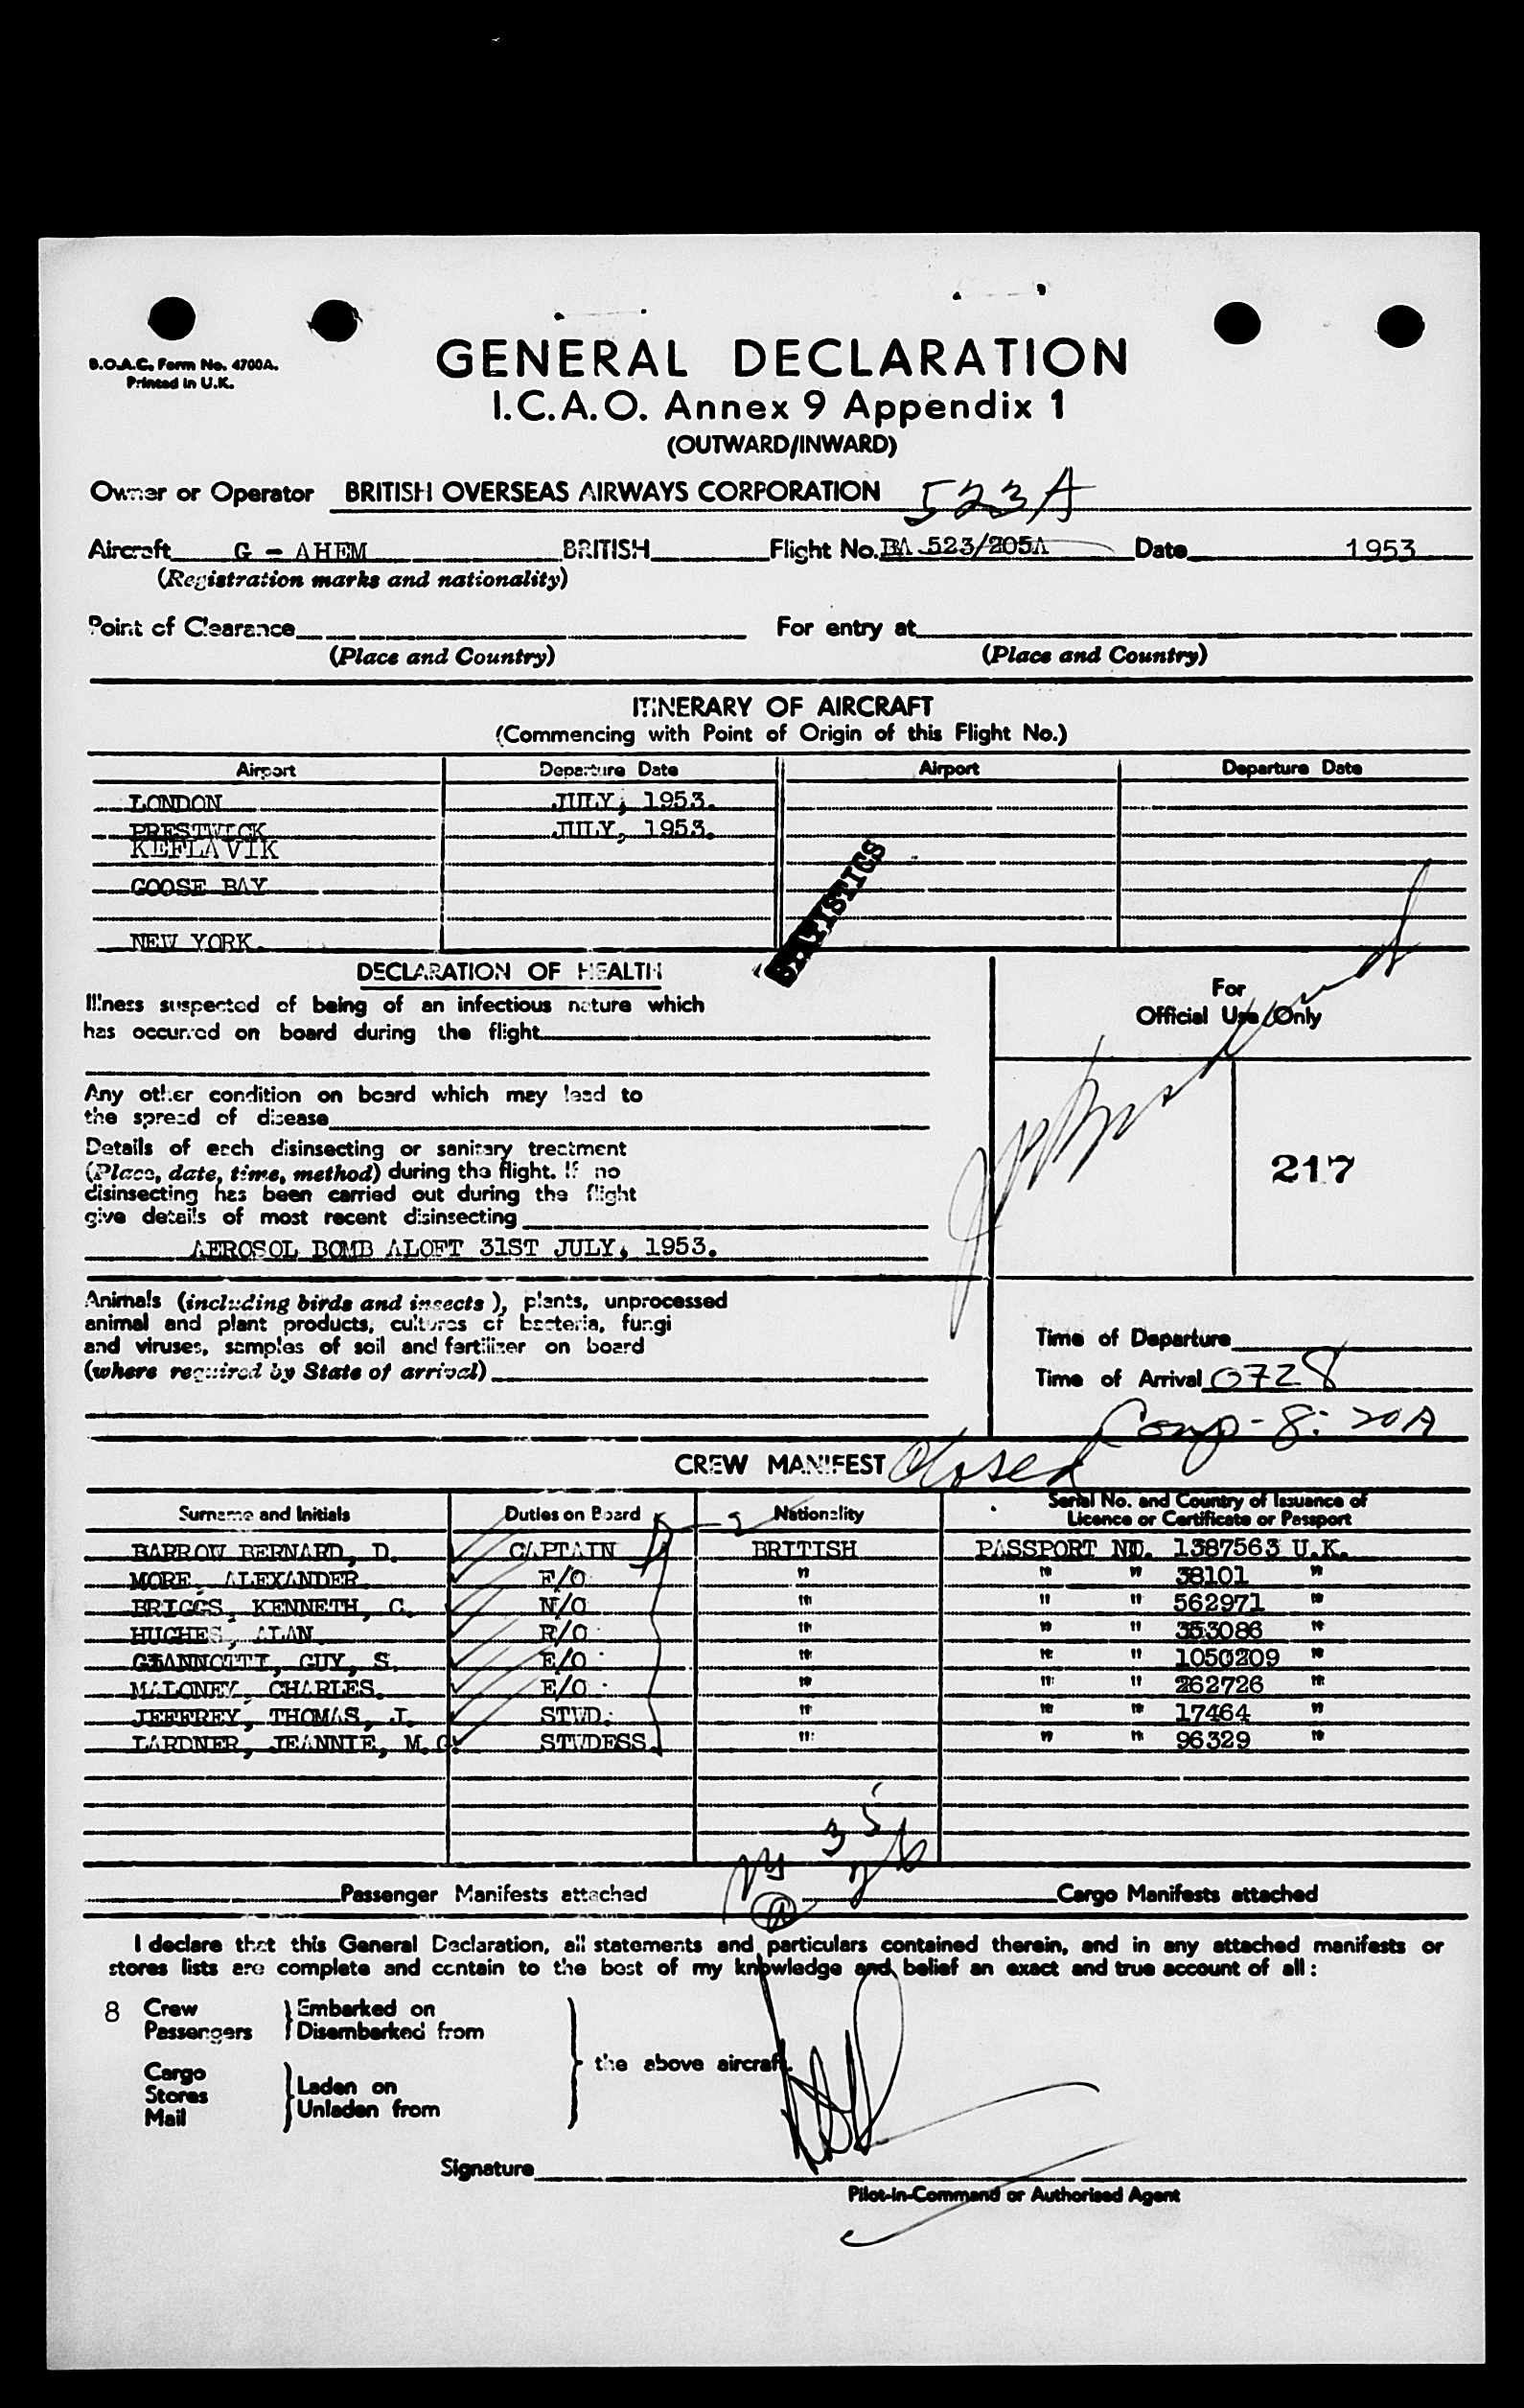 B.O.A.C. Form No. 4700A.
Printed in U.K.
GENERAL DECLARATION
I.C.A.O. Annex 9 Appendix 1
(OUTWARD/INWARD)
Owner or Operator BRITISH OVERSEAS AIRWAYS CORPORATION 523A
Aircraft G - AHEM BRITISH Flight No. BA 523/205A Date 1953
(Registration marks and nationality)
Point of Clearance For entry at
(Place and Country) (Place and Country)
ITINERARY OF AIRCRAFT
(Commencing with Point of Origin of this Flight No.)
Airport Departure Date Airport Departure Date
LONDON JULY, 1953.
PRESTWICK JULY, 1953.
KEFLAVIK
GOOSE BAY
NEW YORK.
STATISTICS
DECLARATION OF HEALTH
Illness suspected of being of an infectious nature which
has occurred on board during the flight
Any other condition on board which may lead to
the spread of disease
Details of each disinsecting or sanitary treatment
(Place, date, time, method) during the flight. If no
disinsecting has been carried out during the flight
give details of most recent disinsecting
AEROSOL BOMB ALOFT 31ST JULY, 1953.
Animals (including birds and insects), plants, unprocessed
animal and plant products, cultures of bacteria, fungi
and viruses, samples of soil and fertilizer on board
(where required by State of arrival)
For
Official Use Only
217
Time of Departure
Time of Arrival 0728
Comp - 8:20A
CREW MANIFEST Closed
Surname and Initials Duties on Board Nationality Serial No. and Country of Issuance of
Licence or Certificate or Passport
BARROW BERNARD, D. CAPTAIN BRITISH PASSPORT NO. 1387563 U.K.
MORE, ALEXANDER F/O " " " 38101 "
BRIGGS, KENNETH, C. N/O " " " 562971 "
HUGHES, ALAN R/O " " " 353086 "
GIANNOTTI, GUY, S. E/O " " " 1050209 "
MALONEY, CHARLES. E/O " " " 262726 "
JEFFREY, THOMAS, J. STWD. " " " 17464 "
LARDNER, JEANNIE, M.C. STWDESS. " " " 96329 "
35
Passenger Manifests attached Cargo Manifests attached
I declare that this General Declaration, all statements and particulars contained therein, and in any attached manifests or
stores lists are complete and contain to the best of my knowledge and belief an exact and true account of all :
8 Crew Embarked on
Passengers Disembarked from
the above aircraft.
Cargo
Stores Laden on
Mail Unladen from
Signature
Pilot-in-Command or Authorised Agent